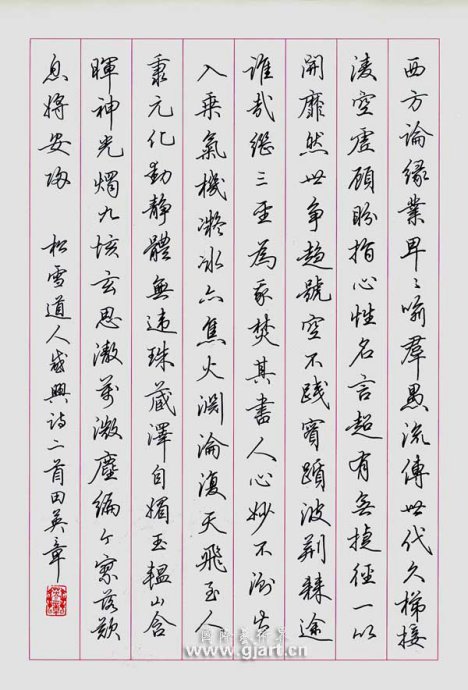 西方論緣業卑〻喻羣愚流傳世代久梯接
凌空虛顧盼指心性名言超有無捷徑一以
開靡然世爭趨號空不踐實躓彼荊棘途
誰哉繼三聖為我焚其書人心妙不測出
入乘氣機凝冰亦焦火淵淪復天飛至人
秉元化動靜體無違珠藏澤自媚玉韞山含
暉神光燭九垓玄思徹萬微塵編今寥落歎
息將安歸 松雪道人感興詩二首田英章
www.gjart.cn